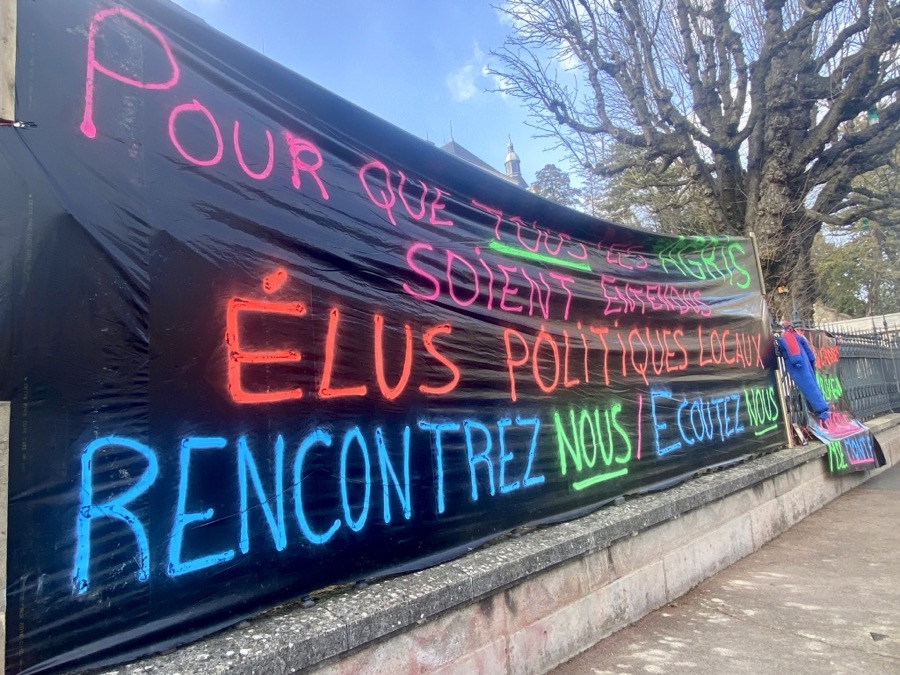 POUR QUE TOUS LES AGRIS
SOIENT ENTENDUS
ÉLUS POLITIQUES LOCAUX
RENCONTREZ NOUS / ECOUTEZ NOUS